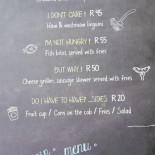 I DON'T CARE! R 45
Ham & mushroom linguini
I'M NOT HUNGRY! R 55
Fish bites, served with fries
BUT WHY! R 50
Cheese griller, sausage skewer served with fries
DO I HAVE TO HAVE?...SIDES R 20
Fruit cup / Corn on the cob / Fries / Salad
menu